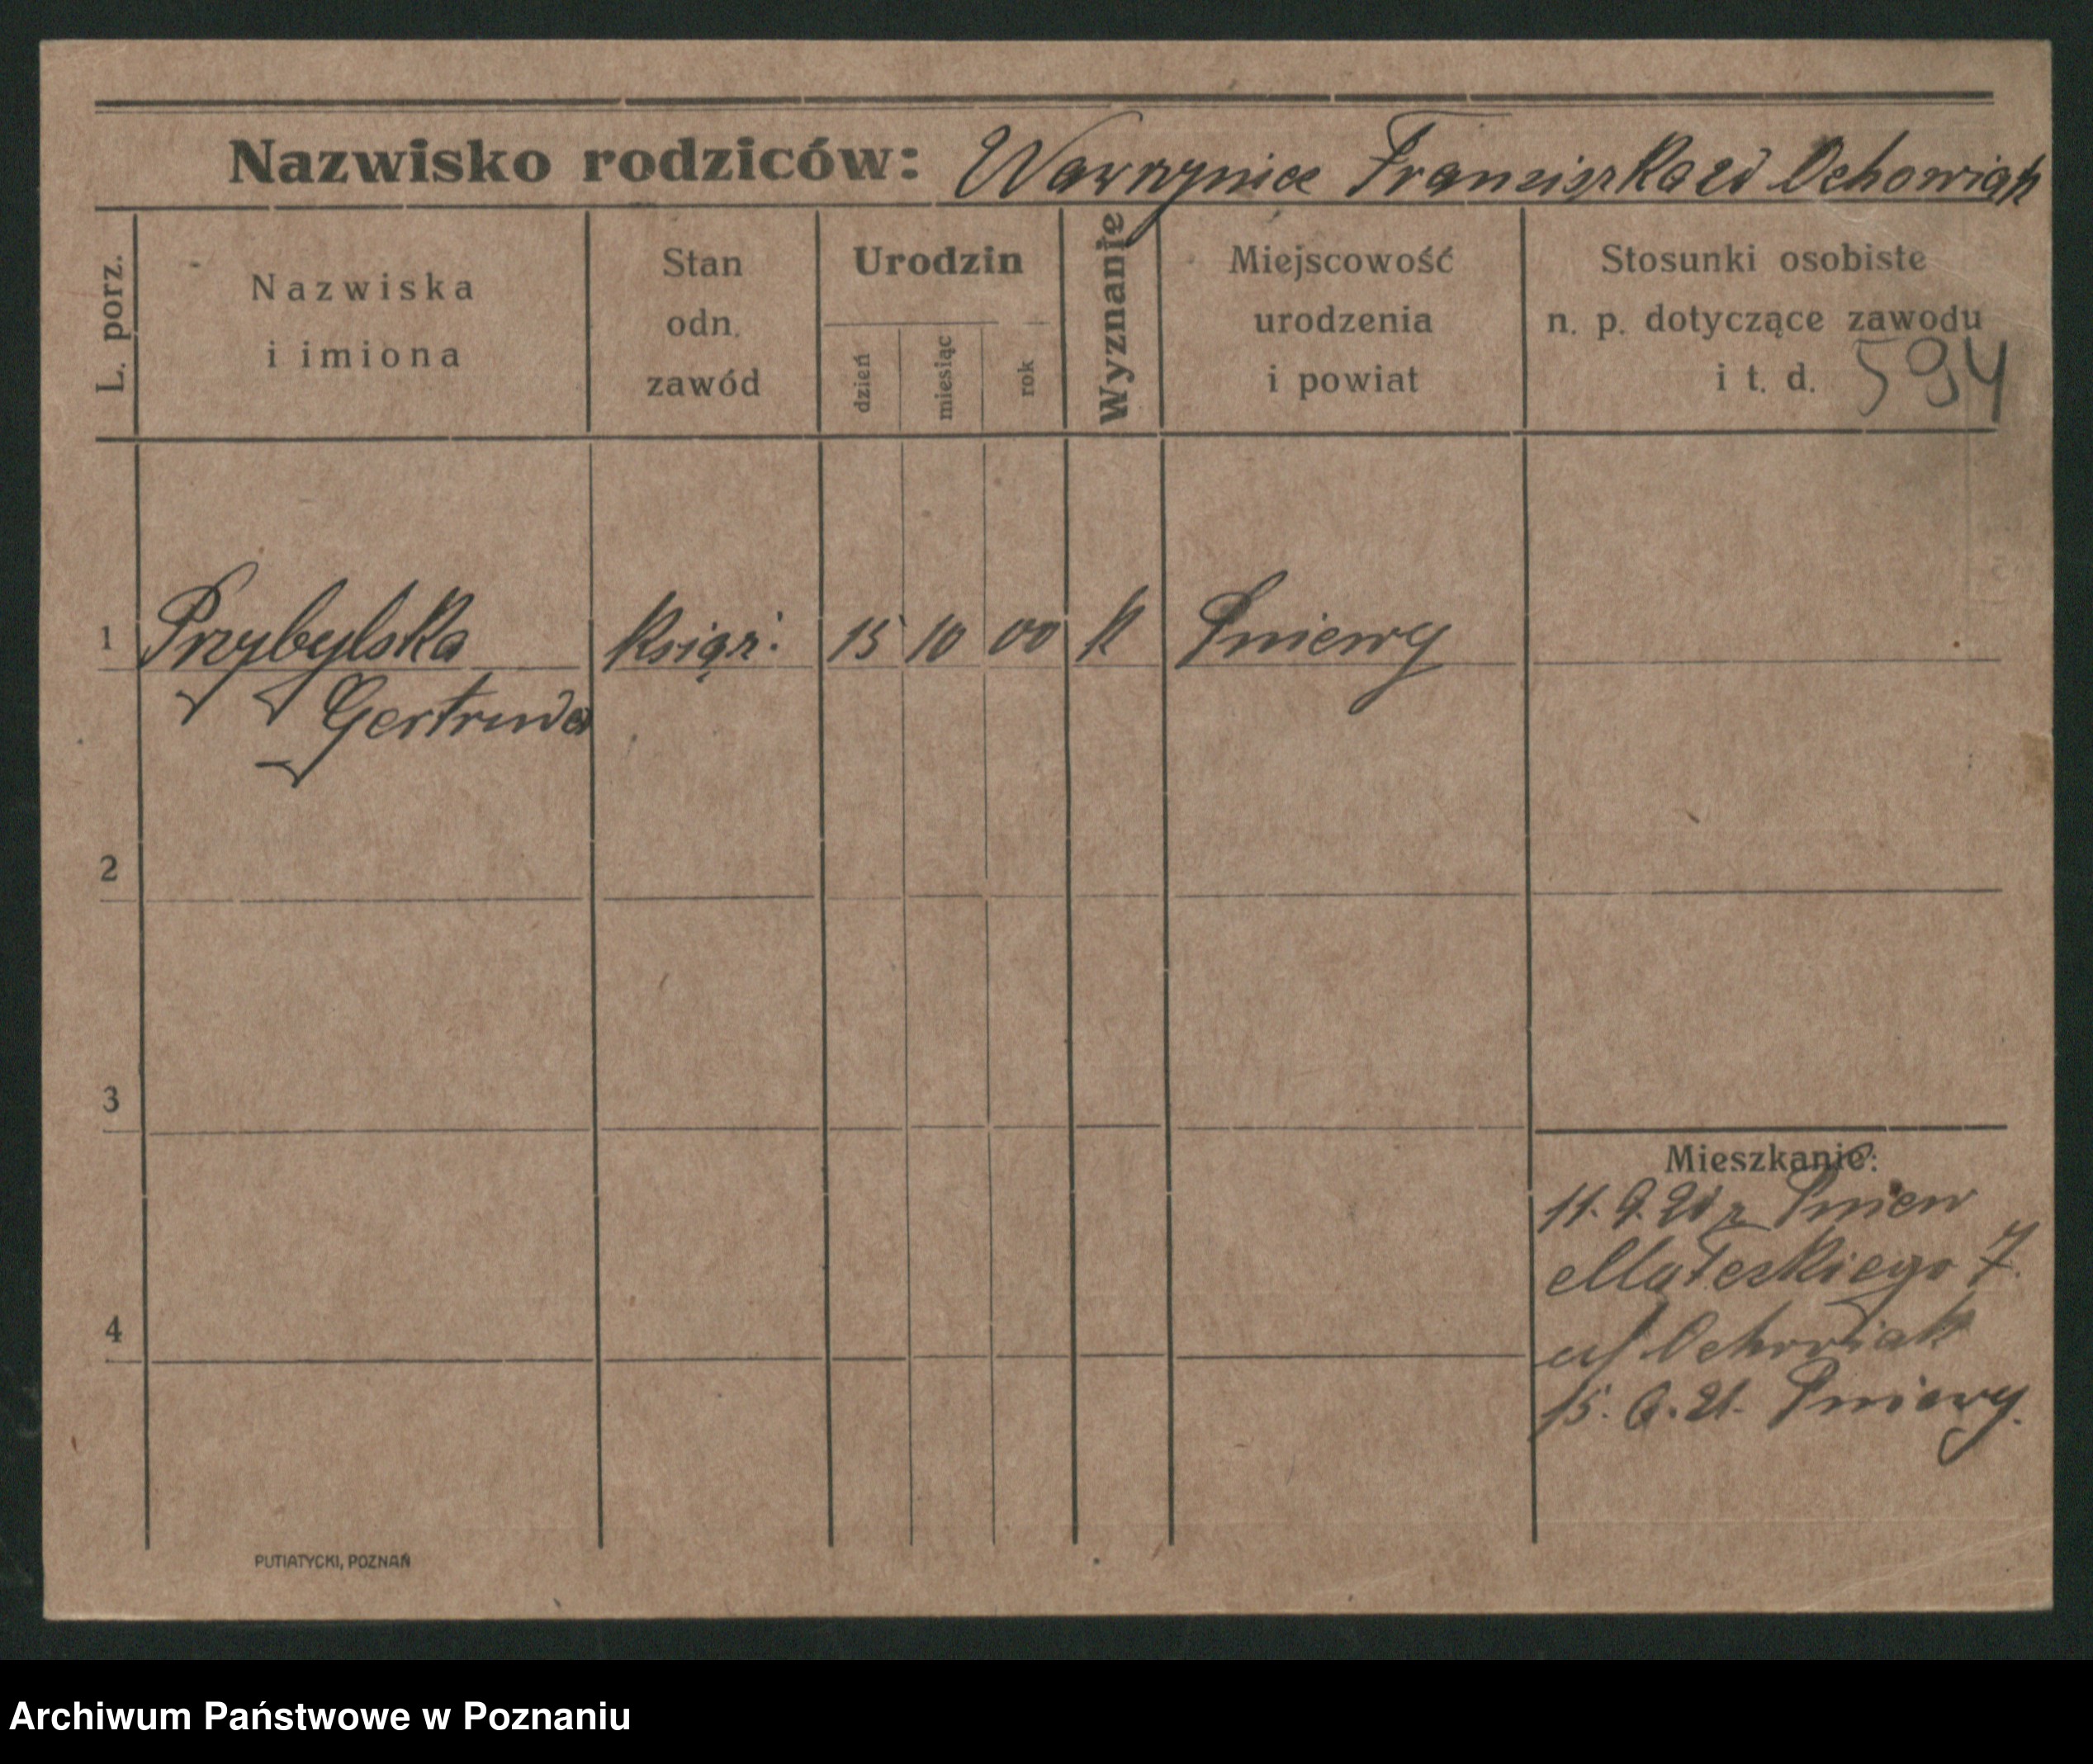 Nazwisko rodziców: Wawrzyniec Franciszka zd Ochowiak
L. porz.
Nazwiska
i imiona
Stan
odn.
zawód
Urodzin
dzień
miesiąc
rok
Wyznanie
Miejscowość
urodzenia
i powiat
Stosunki osobiste
n. p. dotyczące zawodu
i t. d. 594
1 Przybylska książ. 15 10 00 k Pniewy
Gertruda
2
3
4
Mieszkanie:
11. 9. 20 z Pniew
7.
Ochowiak
15. 6. 21. Pniewy.
PUTIATYCKI, POZNAŃ
Archiwum Państwowe w Poznaniu